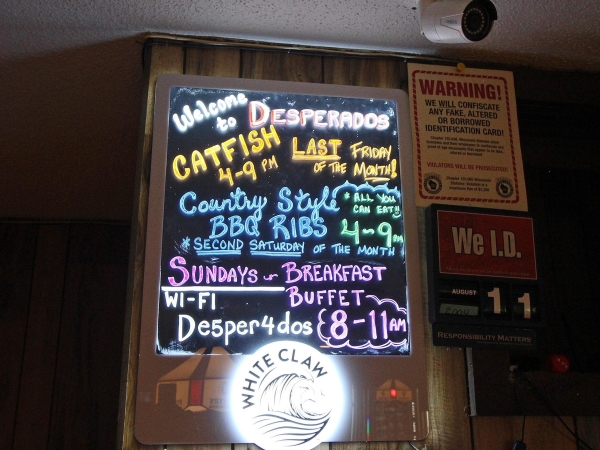 Welcome
to DESPERADOS
CATFISH LAST FRIDAY
4-9 PM OF THE MONTH!
Country Style * ALL YOU
CAN EAT!!
BBQ RIBS 4-9 PM
* SECOND SATURDAY OF THE MONTH
SUNDAYS ~ BREAKFAST
WI-FI BUFFET
De5per4dos 8-11 AM
WHITE CLAW
WARNING!
WE WILL CONFISCATE
ANY FAKE, ALTERED
OR BORROWED
IDENTIFICATION CARD!
VIOLATORS WILL BE PROSECUTED!
We I.D.
AUGUST 11
RESPONSIBILITY MATTERS